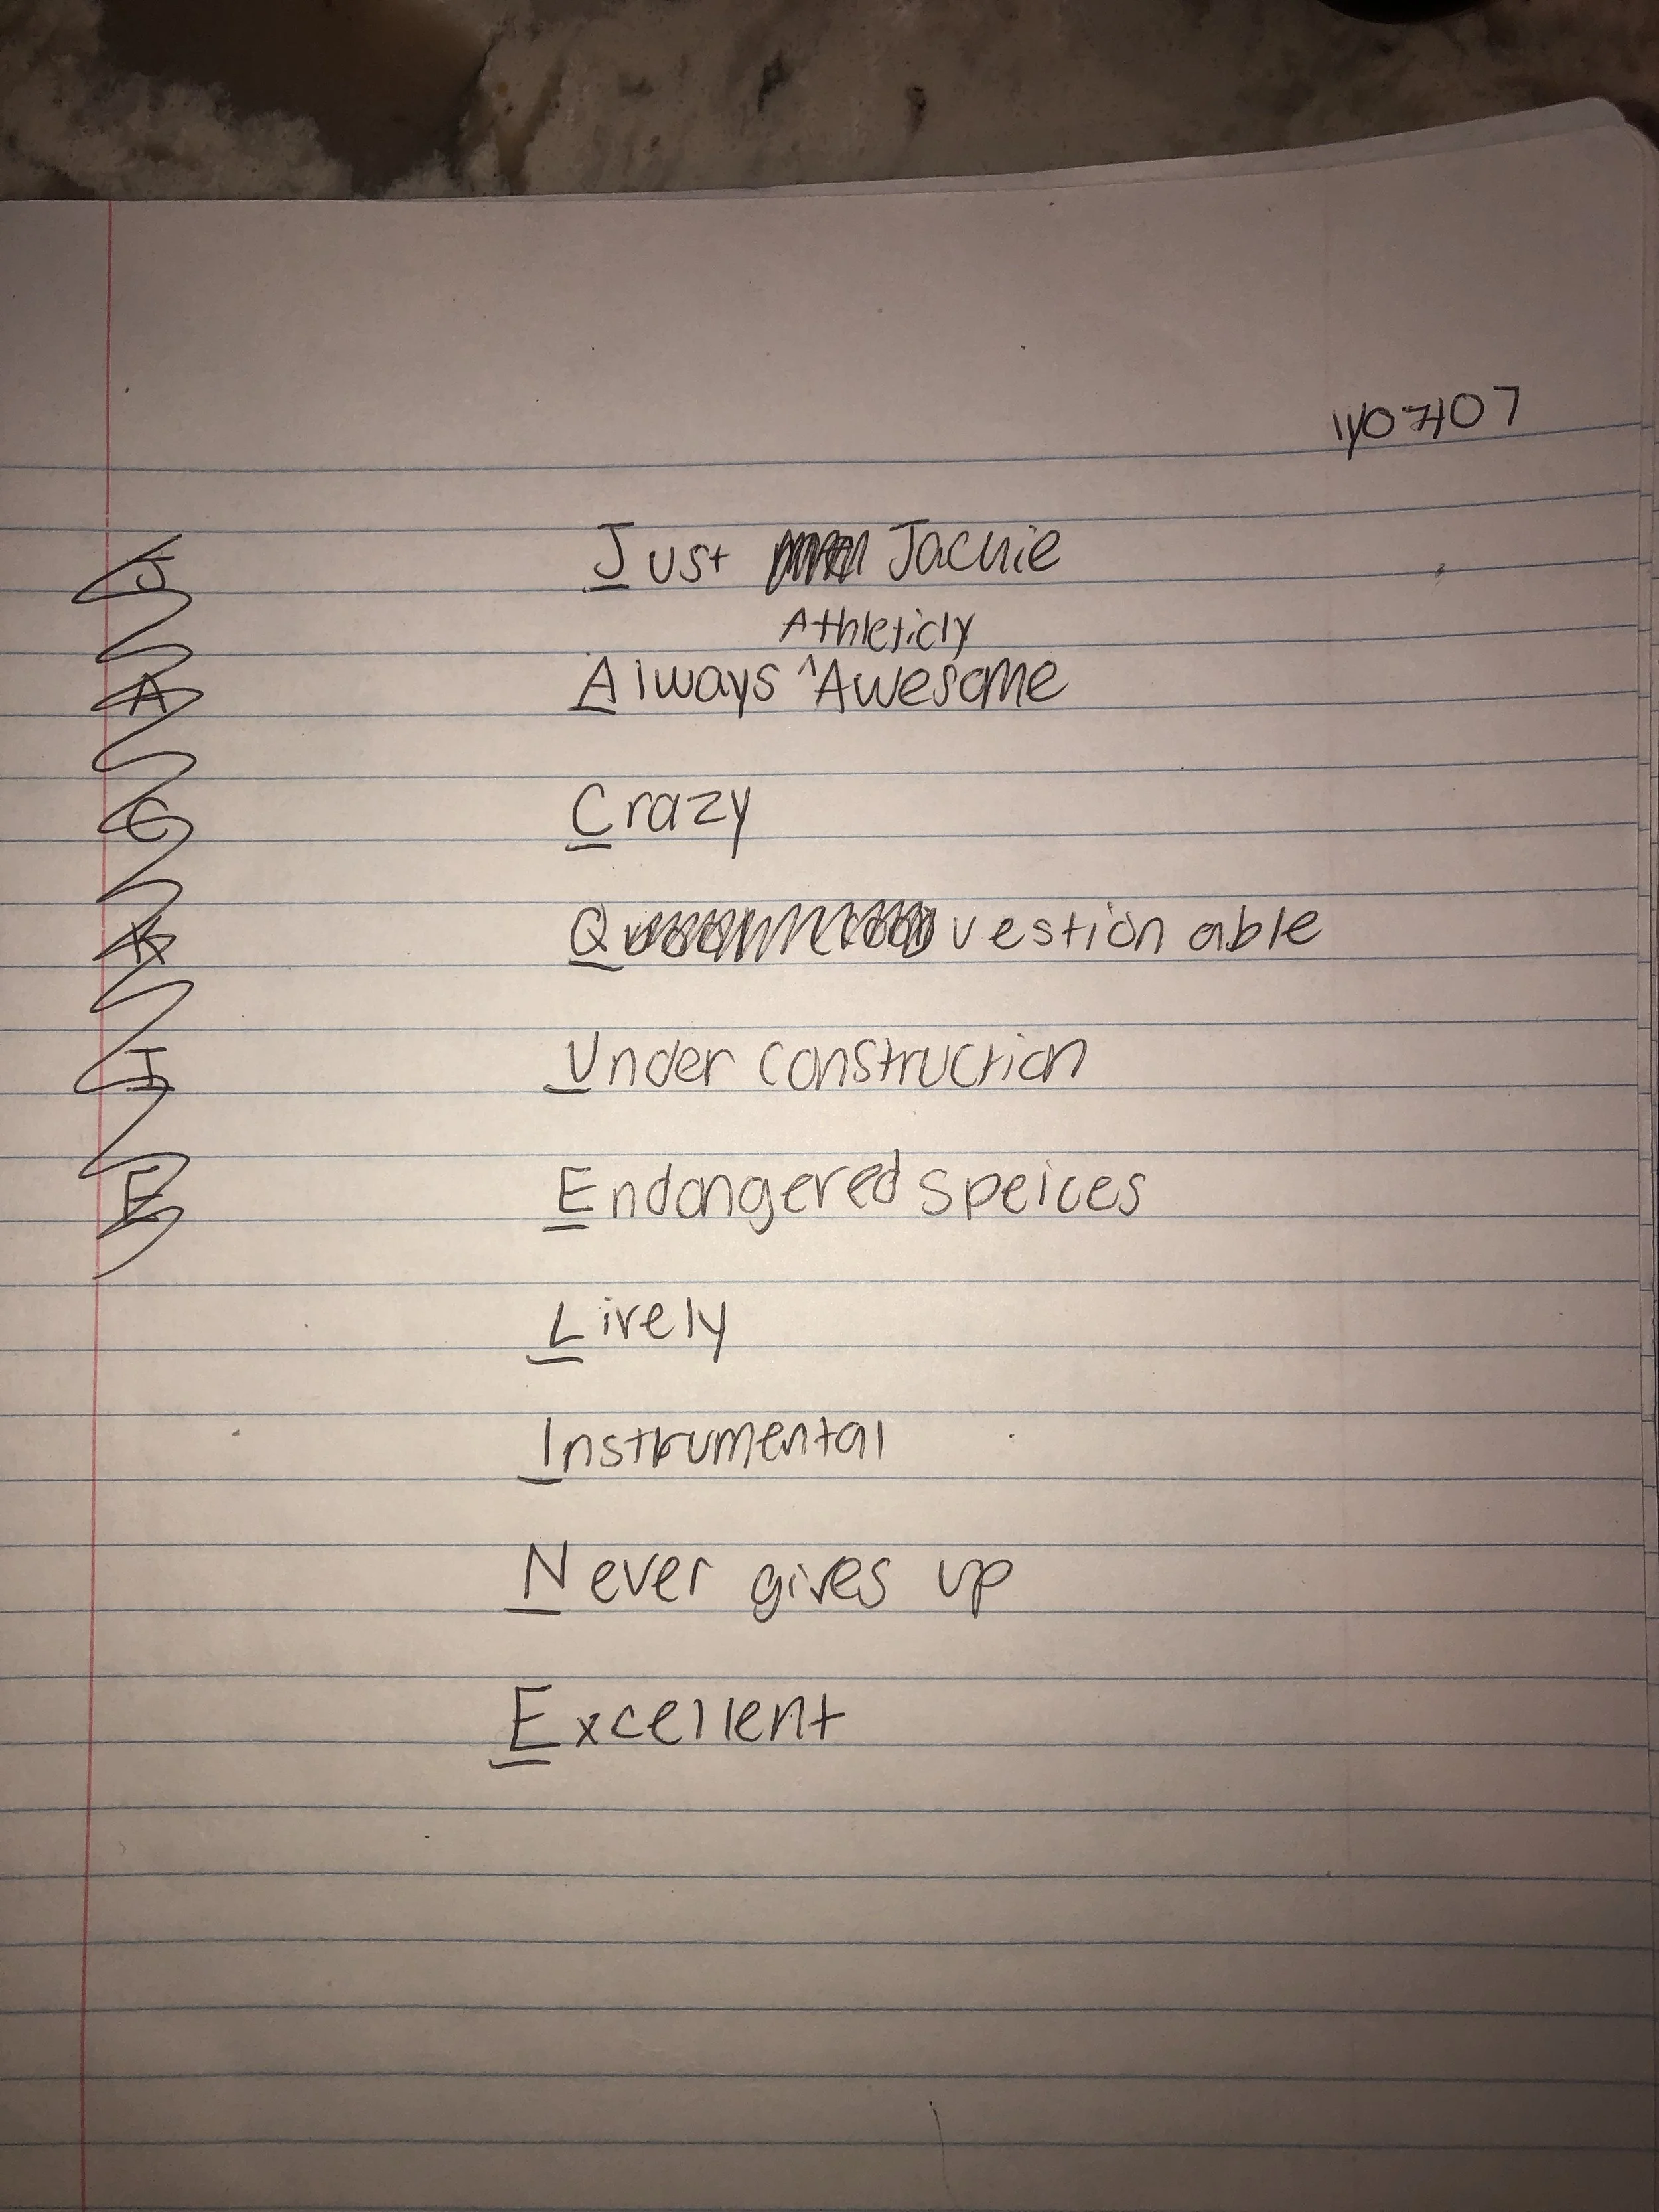 11/07/07
Just Jackie
Athleticly
Always ^ Awesome
Crazy
Questionable
Under construction
Endangered speices
Lively
Instrumental
Never gives up
Excellent
J
A
C
K
I
E